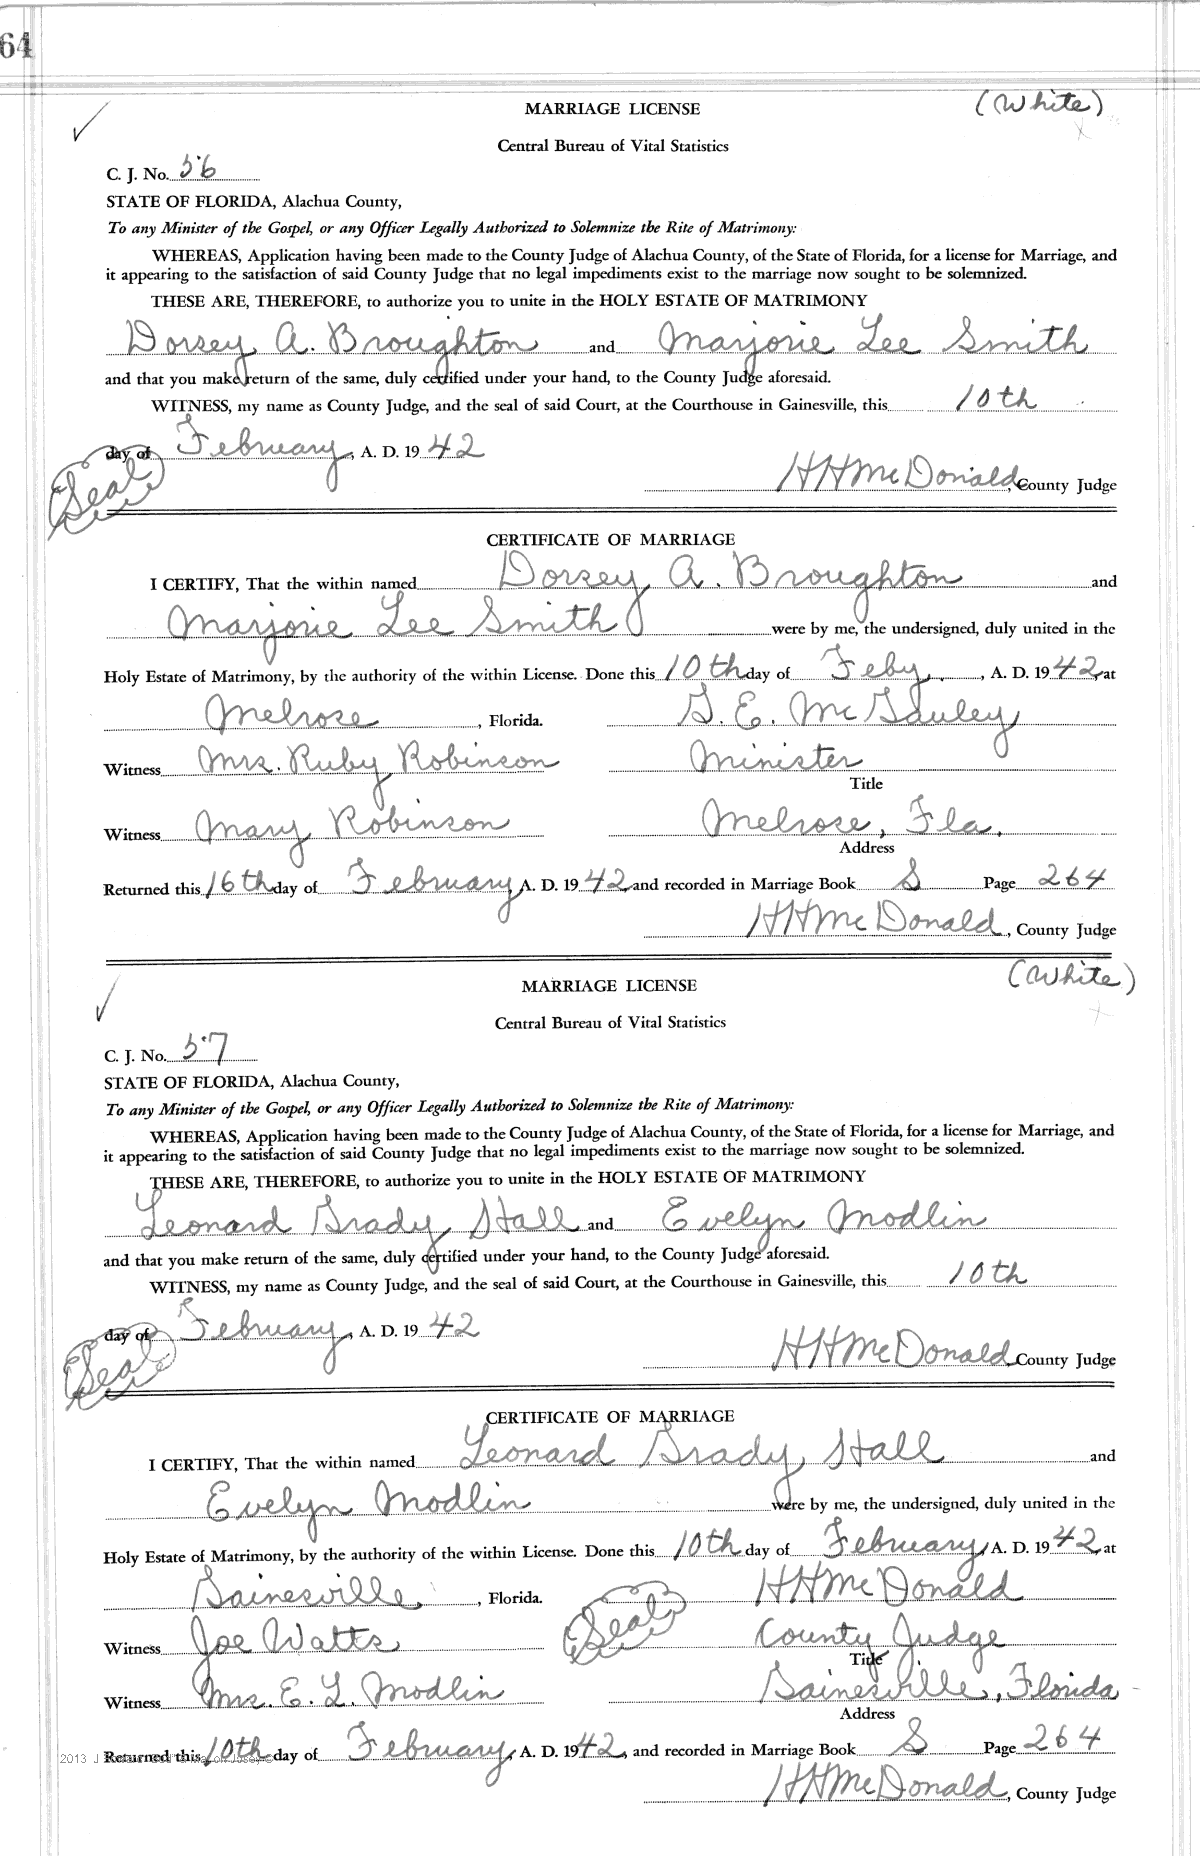 64
MARRIAGE LICENSE (White)
Central Bureau of Vital Statistics
C. J. No. 56
STATE OF FLORIDA, Alachua County,
To any Minister of the Gospel, or any Officer Legally Authorized to Solemnize the Rite of Matrimony:
WHEREAS, Application having been made to the County Judge of Alachua County, of the State of Florida, for a license for Marriage, and
it appearing to the satisfaction of said County Judge that no legal impediments exist to the marriage now sought to be solemnized.
THESE ARE, THEREFORE, to authorize you to unite in the HOLY ESTATE OF MATRIMONY
Dorsey A. Broughton and Marjorie Lee Smith
and that you make return of the same, duly certified under your hand, to the County Judge aforesaid.
WITNESS, my name as County Judge, and the seal of said Court, at the Courthouse in Gainesville, this 10th
day of February, A. D. 1942
Seal HHMcDonald, County Judge
CERTIFICATE OF MARRIAGE
I CERTIFY, That the within named Dorsey A. Broughton and
Marjorie Lee Smith were by me, the undersigned, duly united in the
Holy Estate of Matrimony, by the authority of the within License. Done this 10th day of Feby., A. D. 1942, at
Melrose, Florida. G. E. McGauley
Witness Mrs. Ruby Robinson Minister
Title
Witness Mary Robinson Melrose, Fla.
Address
Returned this 16th day of February, A. D. 1942 and recorded in Marriage Book S Page 264
HHMcDonald, County Judge
MARRIAGE LICENSE (White)
Central Bureau of Vital Statistics
C. J. No. 57
STATE OF FLORIDA, Alachua County,
To any Minister of the Gospel, or any Officer Legally Authorized to Solemnize the Rite of Matrimony:
WHEREAS, Application having been made to the County Judge of Alachua County, of the State of Florida, for a license for Marriage, and
it appearing to the satisfaction of said County Judge that no legal impediments exist to the marriage now sought to be solemnized.
THESE ARE, THEREFORE, to authorize you to unite in the HOLY ESTATE OF MATRIMONY
Leonard Grady Hall and Evelyn Modlin
and that you make return of the same, duly certified under your hand, to the County Judge aforesaid.
WITNESS, my name as County Judge, and the seal of said Court, at the Courthouse in Gainesville, this 10th
day of February, A. D. 1942
Seal HHMcDonald, County Judge
CERTIFICATE OF MARRIAGE
I CERTIFY, That the within named Leonard Grady Hall and
Evelyn Modlin were by me, the undersigned, duly united in the
Holy Estate of Matrimony, by the authority of the within License. Done this 10th day of February, A. D. 1942, at
Gainesville, Florida. Seal HHMcDonald
Witness Joe Watts County Judge
Title
Witness Mrs. E. L. Modlin Gainesville, Florida
Address
2013 Returned this 10th day of February, A. D. 1942, and recorded in Marriage Book S Page 264
HHMcDonald, County Judge